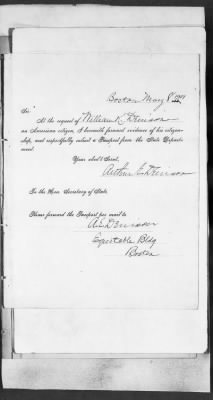 Boston May 8
Sir:
At the request of William K. Denison
an American citizen, I herewith forward evidence of his citizen-
ship, and respectfully submit a Passport from the State Depart-
ment.
Your ob't Servt,
Arthur E. Denison
To the Hon. Secretary of State.
Please forward the Passport per mail to
A E Denison
Equitable Bldg
Boston